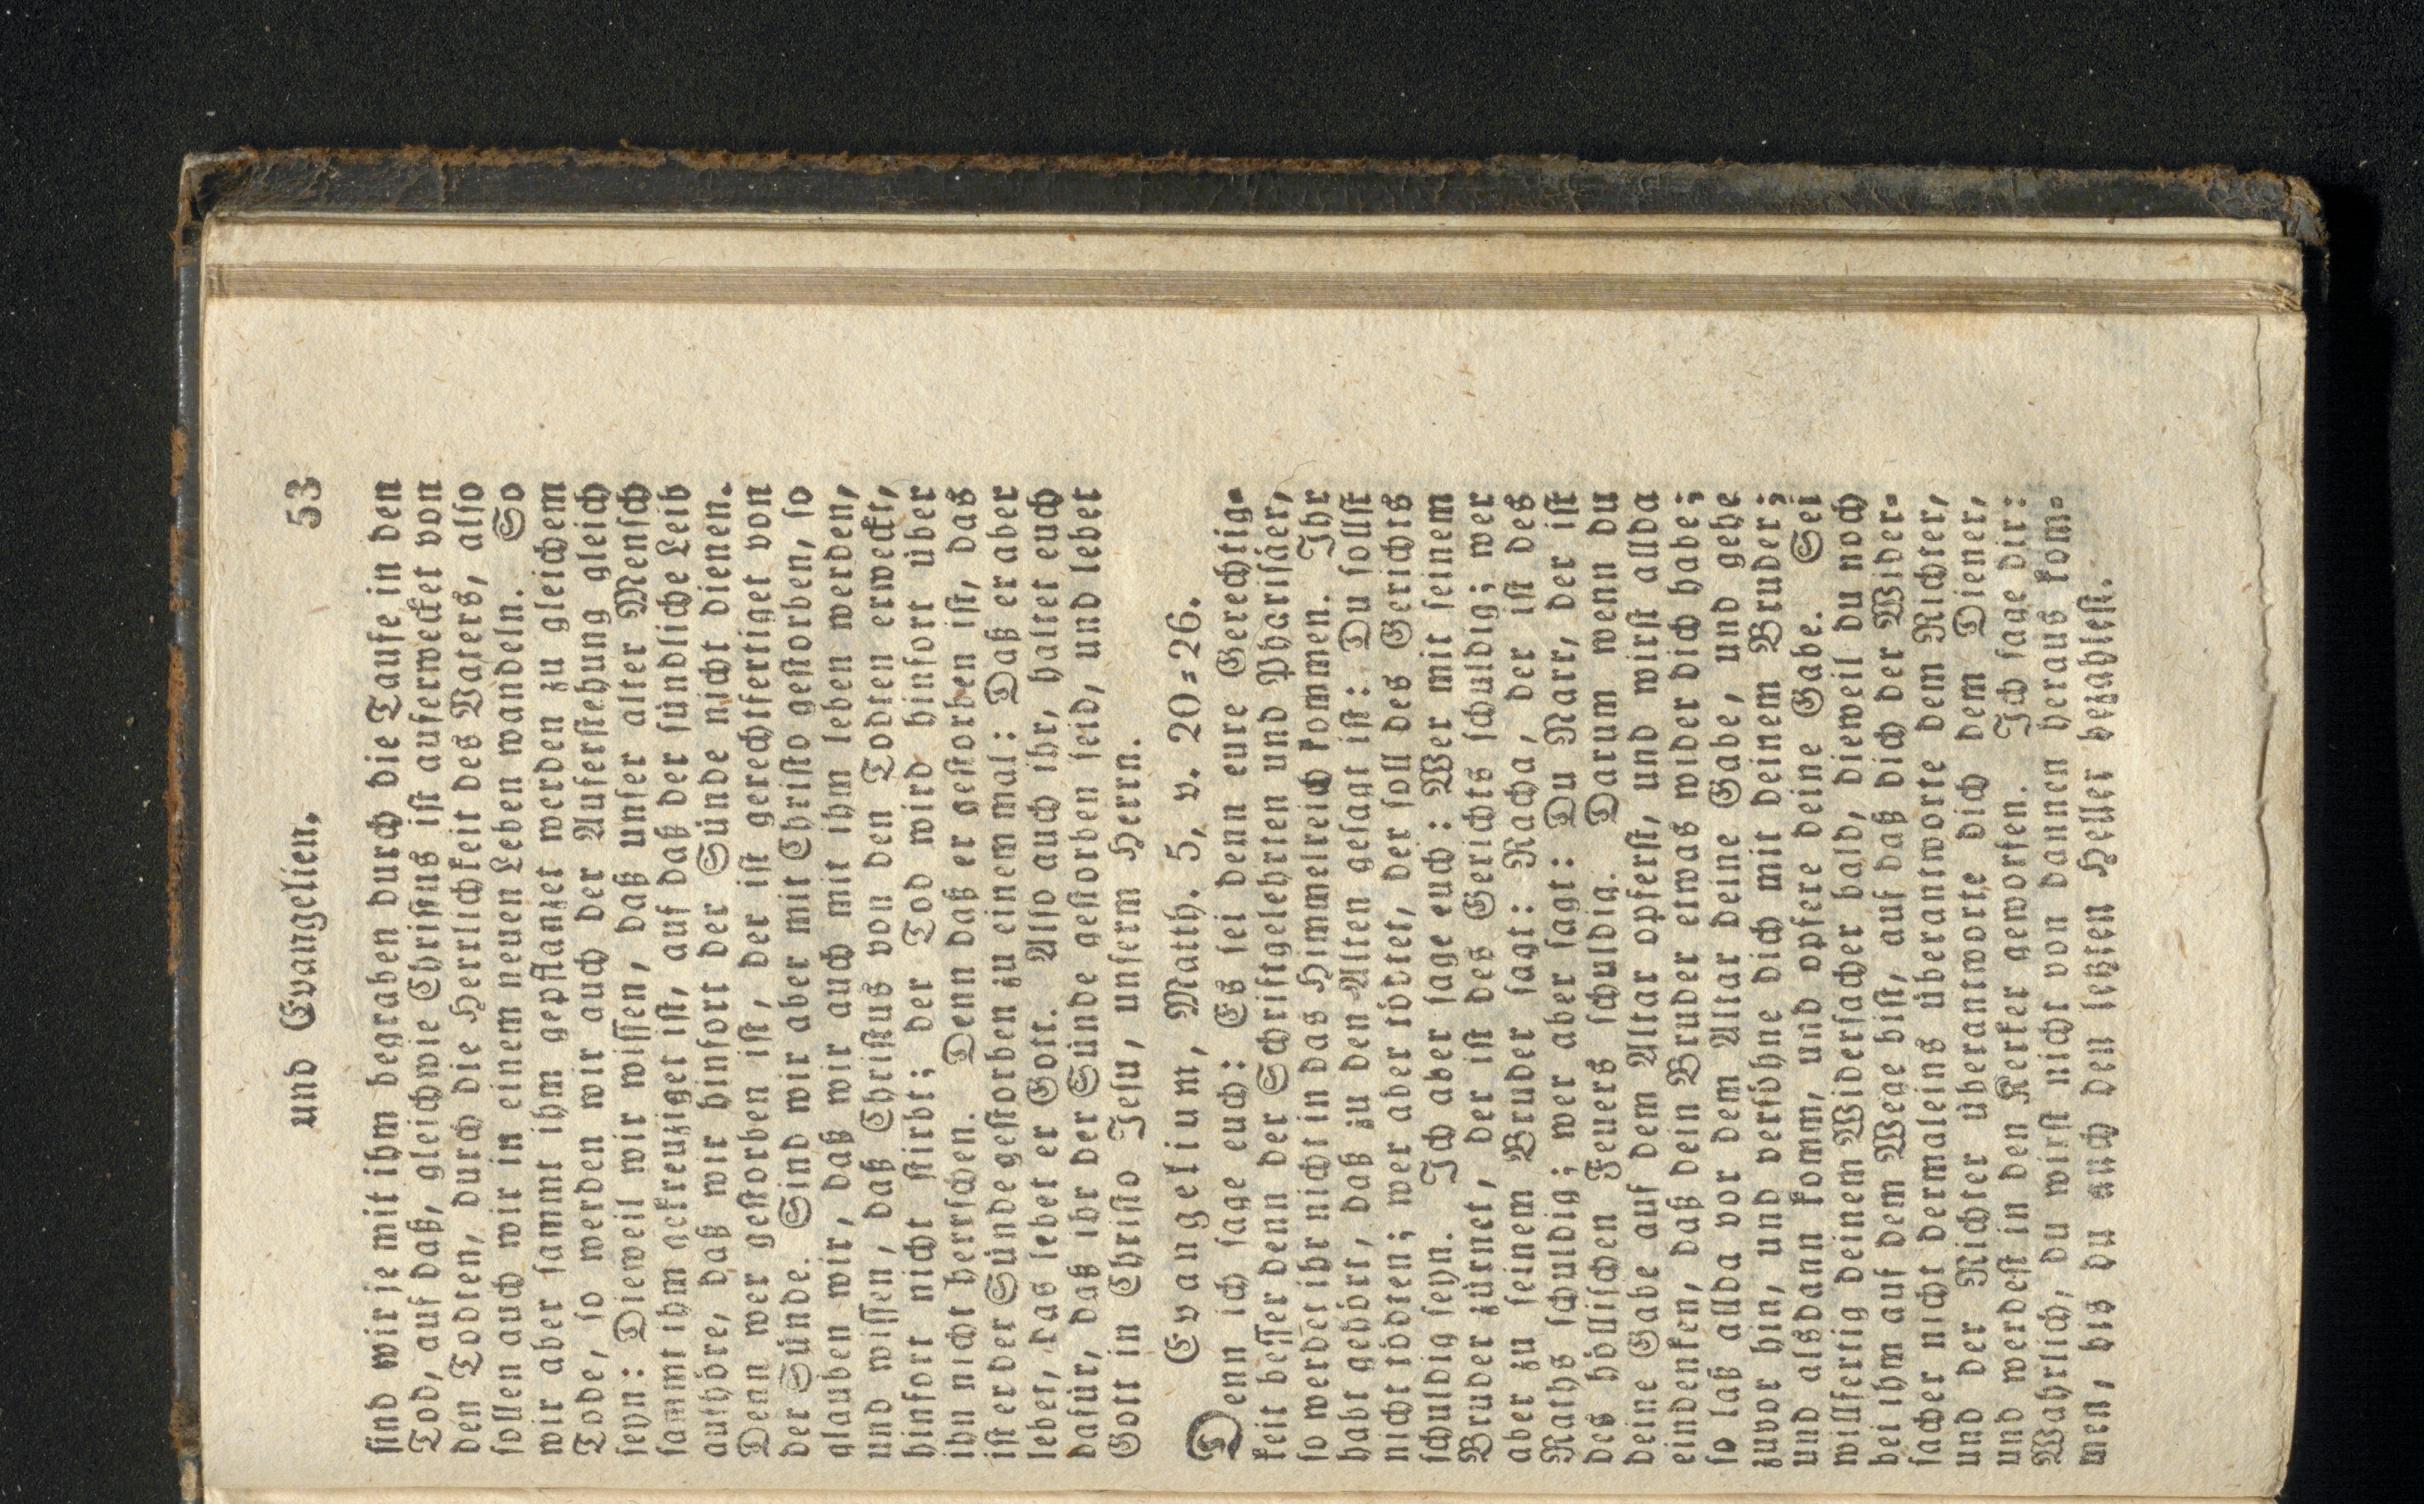 und Evangelien. 53
sind wir je mit ihm begraben durch die Taufe in den
Tod, auf daß, gleichwie Christus ist auferwecket von
den Todten, durch die Herrlichkeit des Vaters, also
sollen auch wir in einem neuen Leben wandeln. So
wir aber sammt ihm gepflanzet werden zu gleichem
Tode, so werden wir auch der Auferstehung gleich
seyn: Dieweil wir wissen, daß unser alter Mensch
sammt ihm gekreuziget ist, auf daß der sündliche Leib
aufhöre, daß wir hinfort der Sünde nicht dienen.
Denn wer gestorben ist, der ist gerechtfertiget von
der Sünde. Sind wir aber mit Christo gestorben, so
glauben wir, daß wir auch mit ihm leben werden,
und wissen, daß Christus von den Todten erweckt,
hinfort nicht stirbt; der Tod wird hinfort über
ihn nicht herrschen. Denn daß er gestorben ist, das
ist er der Sünde gestorben zu einem mal: Daß er aber
lebet, das lebet er Gott. Also auch ihr, haltet euch
dafür, daß ihr der Sünde gestorben seid, und lebet
Gott in Christo Jesu, unserm Herrn.
Evangelium, Matth. 5, v. 20=26.
Denn ich sage euch: Es sei denn eure Gerechtig=
keit besser denn der Schriftgelehrten und Pharisäer,
so werdet ihr nicht in das Himmelreich kommen. Ihr
habt gehört, daß zu den Alten gesagt ist: Du sollst
nicht tödten; wer aber tödtet, der soll des Gerichts
schuldig seyn. Ich aber sage euch: Wer mit seinem
Bruder zürnet, der ist des Gerichts schuldig; wer
aber zu seinem Bruder sagt: Racha, der ist des
Raths schuldig; wer aber sagt: Du Narr, der ist
des höllischen Feuers schuldig. Darum wenn du
deine Gabe auf dem Altar opferst, und wirst allda
eindenken, daß dein Bruder etwas wider dich habe;
so laß allda vor dem Altar deine Gabe, und gehe
zuvor hin, und versöhne dich mit deinem Bruder;
und alsdann komm, und opfere deine Gabe. Sei
willfertig deinem Widersacher bald, dieweil du noch
bei ihm auf dem Wege bist, auf daß dich der Wider=
sacher nicht dermaleins überantworte dem Richter,
und der Richter überantworte dich dem Diener,
und werdest in den Kerker geworfen. Ich sage dir:
Wahrlich, du wirst nicht von dannen heraus kom=
men, bis du auch den letzten Heller bezahlest.